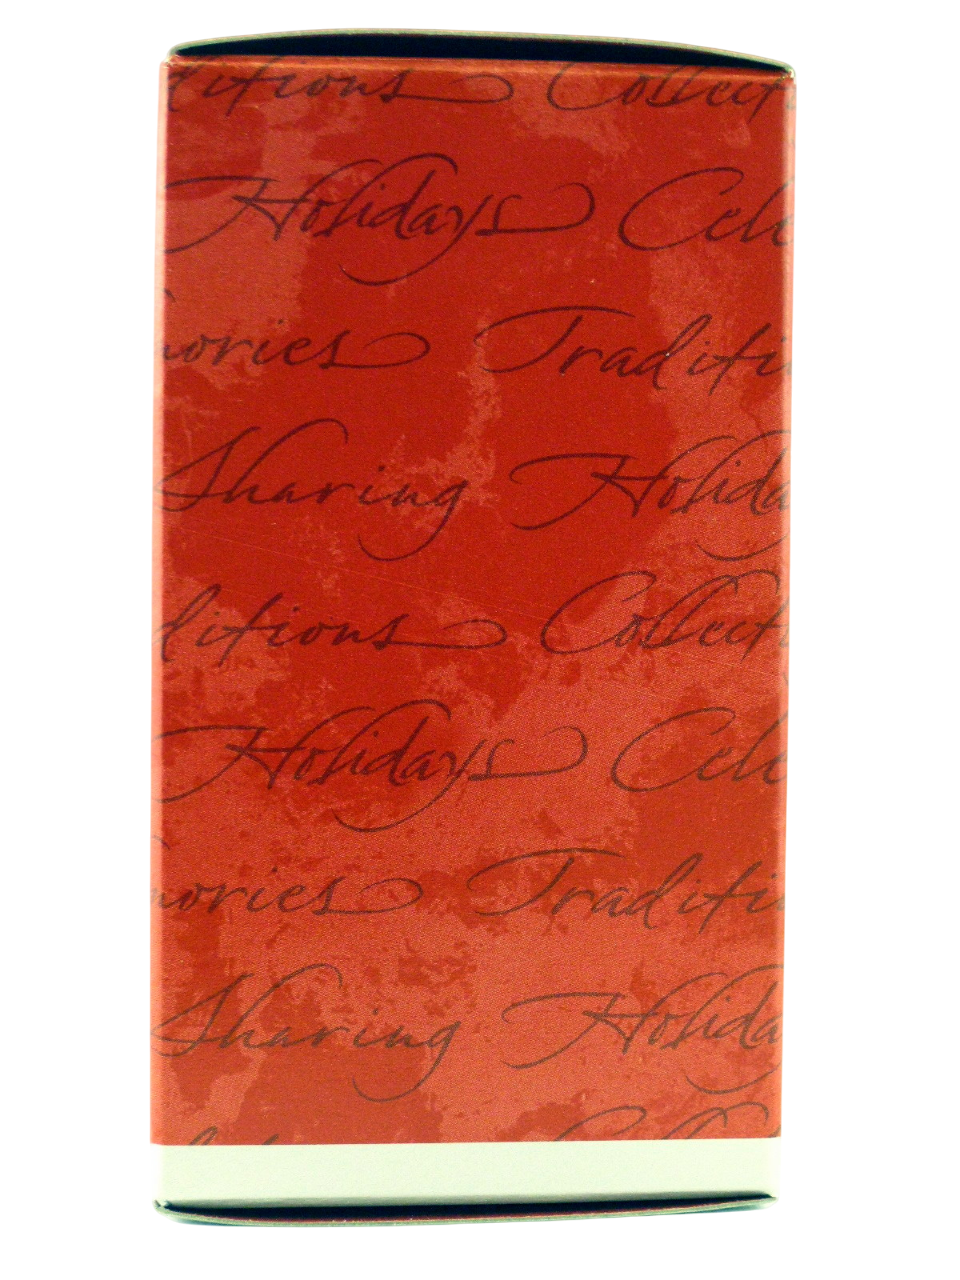 ditions Collect
Holidays Cele
mories Traditi
Sharing Holida
ditions Collect
Holidays Cele
mories Traditi
Sharing Holida